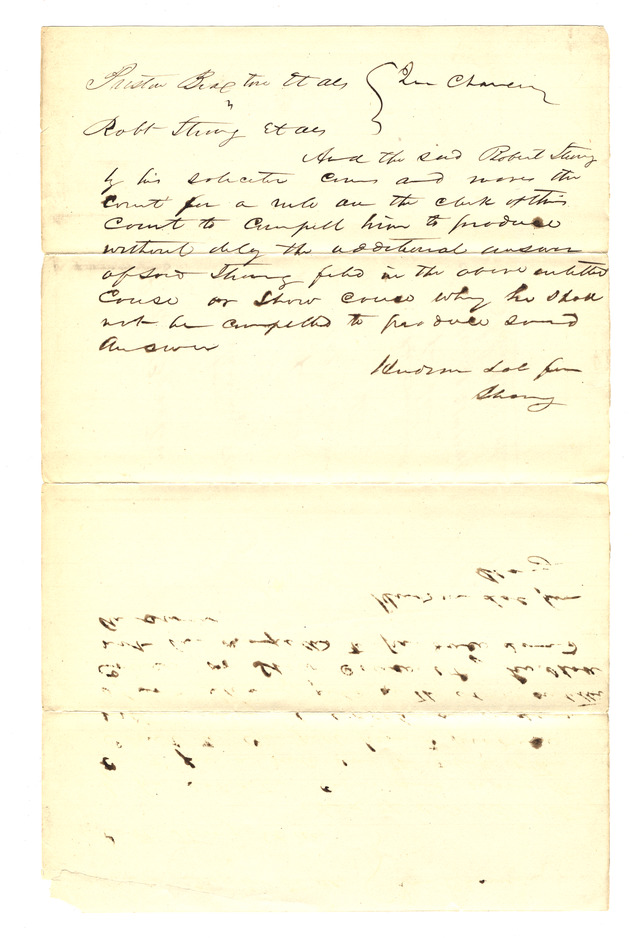 Preston Braxton Et als } In Chancery
vs
Robt Strong Et als
And the said Robert Strong
by his soliciter comes and moves the
Court for a rule on the clerk of this
Court to Compell him to produce
without delay the additional answer
of said Strong filed in the above entitled
Couse or Show couse why he Shall
not be compelled to produce said
Answer
Hudson Sol for
Strong